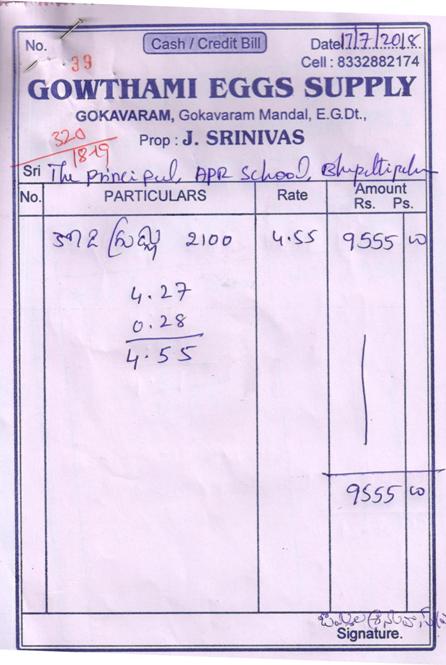 No. 39
Cash / Credit Bill
Date 17/7/2018.
Cell : 8332882174
GOWTHAMI EGGS SUPPLY
GOKAVARAM, Gokavaram Mandal, E.G.Dt.,
320
18-19
Prop : J. SRINIVAS
Sri The principal, APR School,
No. PARTICULARS Rate Amount
Rs. Ps.
2100 4.55 9555 00
4.27
0.28
4.55
9555 00
Signature.